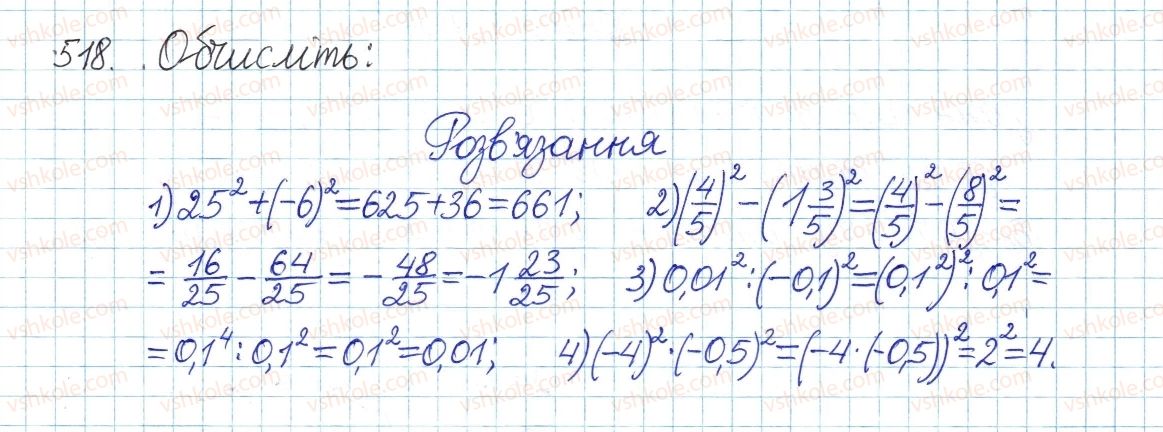 518. Обчисліть:
Розв'язання
1) 25² + (-6)² = 625 + 36 = 661; 2) (4/5)² - (1 3/5)² = (4/5)² - (8/5)² =
= 16/25 - 64/25 = - 48/25 = -1 23/25; 3) 0,01² : (-0,1)² = (0,1²)² : 0,1² =
= 0,1⁴ : 0,1² = 0,1² = 0,01; 4) (-4)² · (-0,5)² = (-4 · (-0,5))² = 2² = 4.